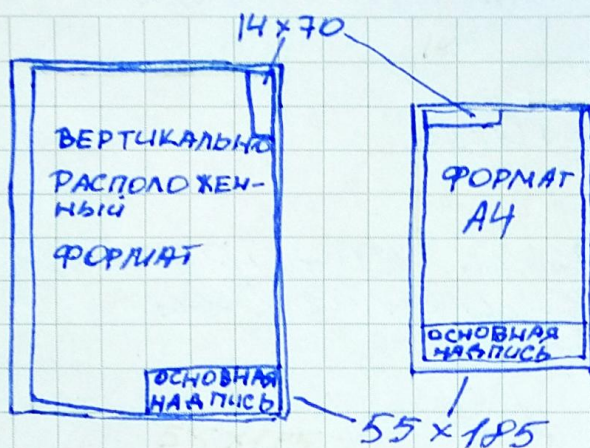 14×70
ВЕРТИКАЛЬНО
РАСПОЛОЖЕН-
НЫЙ
ФОРМАТ
ОСНОВНАЯ
НАДПИСЬ
ФОРМАТ
А4
ОСНОВНАЯ
НАДПИСЬ
55×185